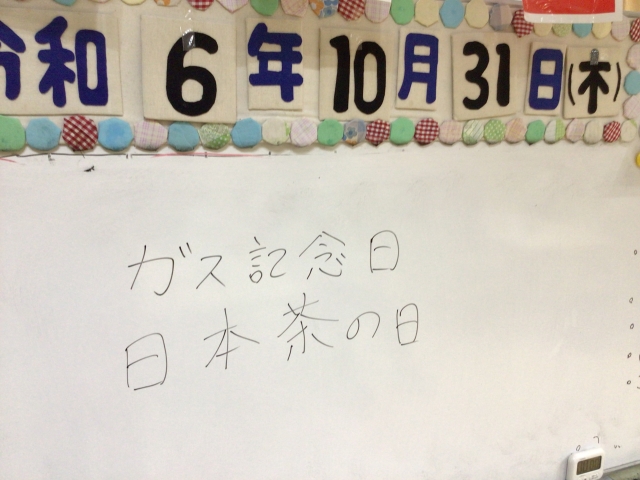 令和6年10月31日(木)
ガス記念日
日本茶の日